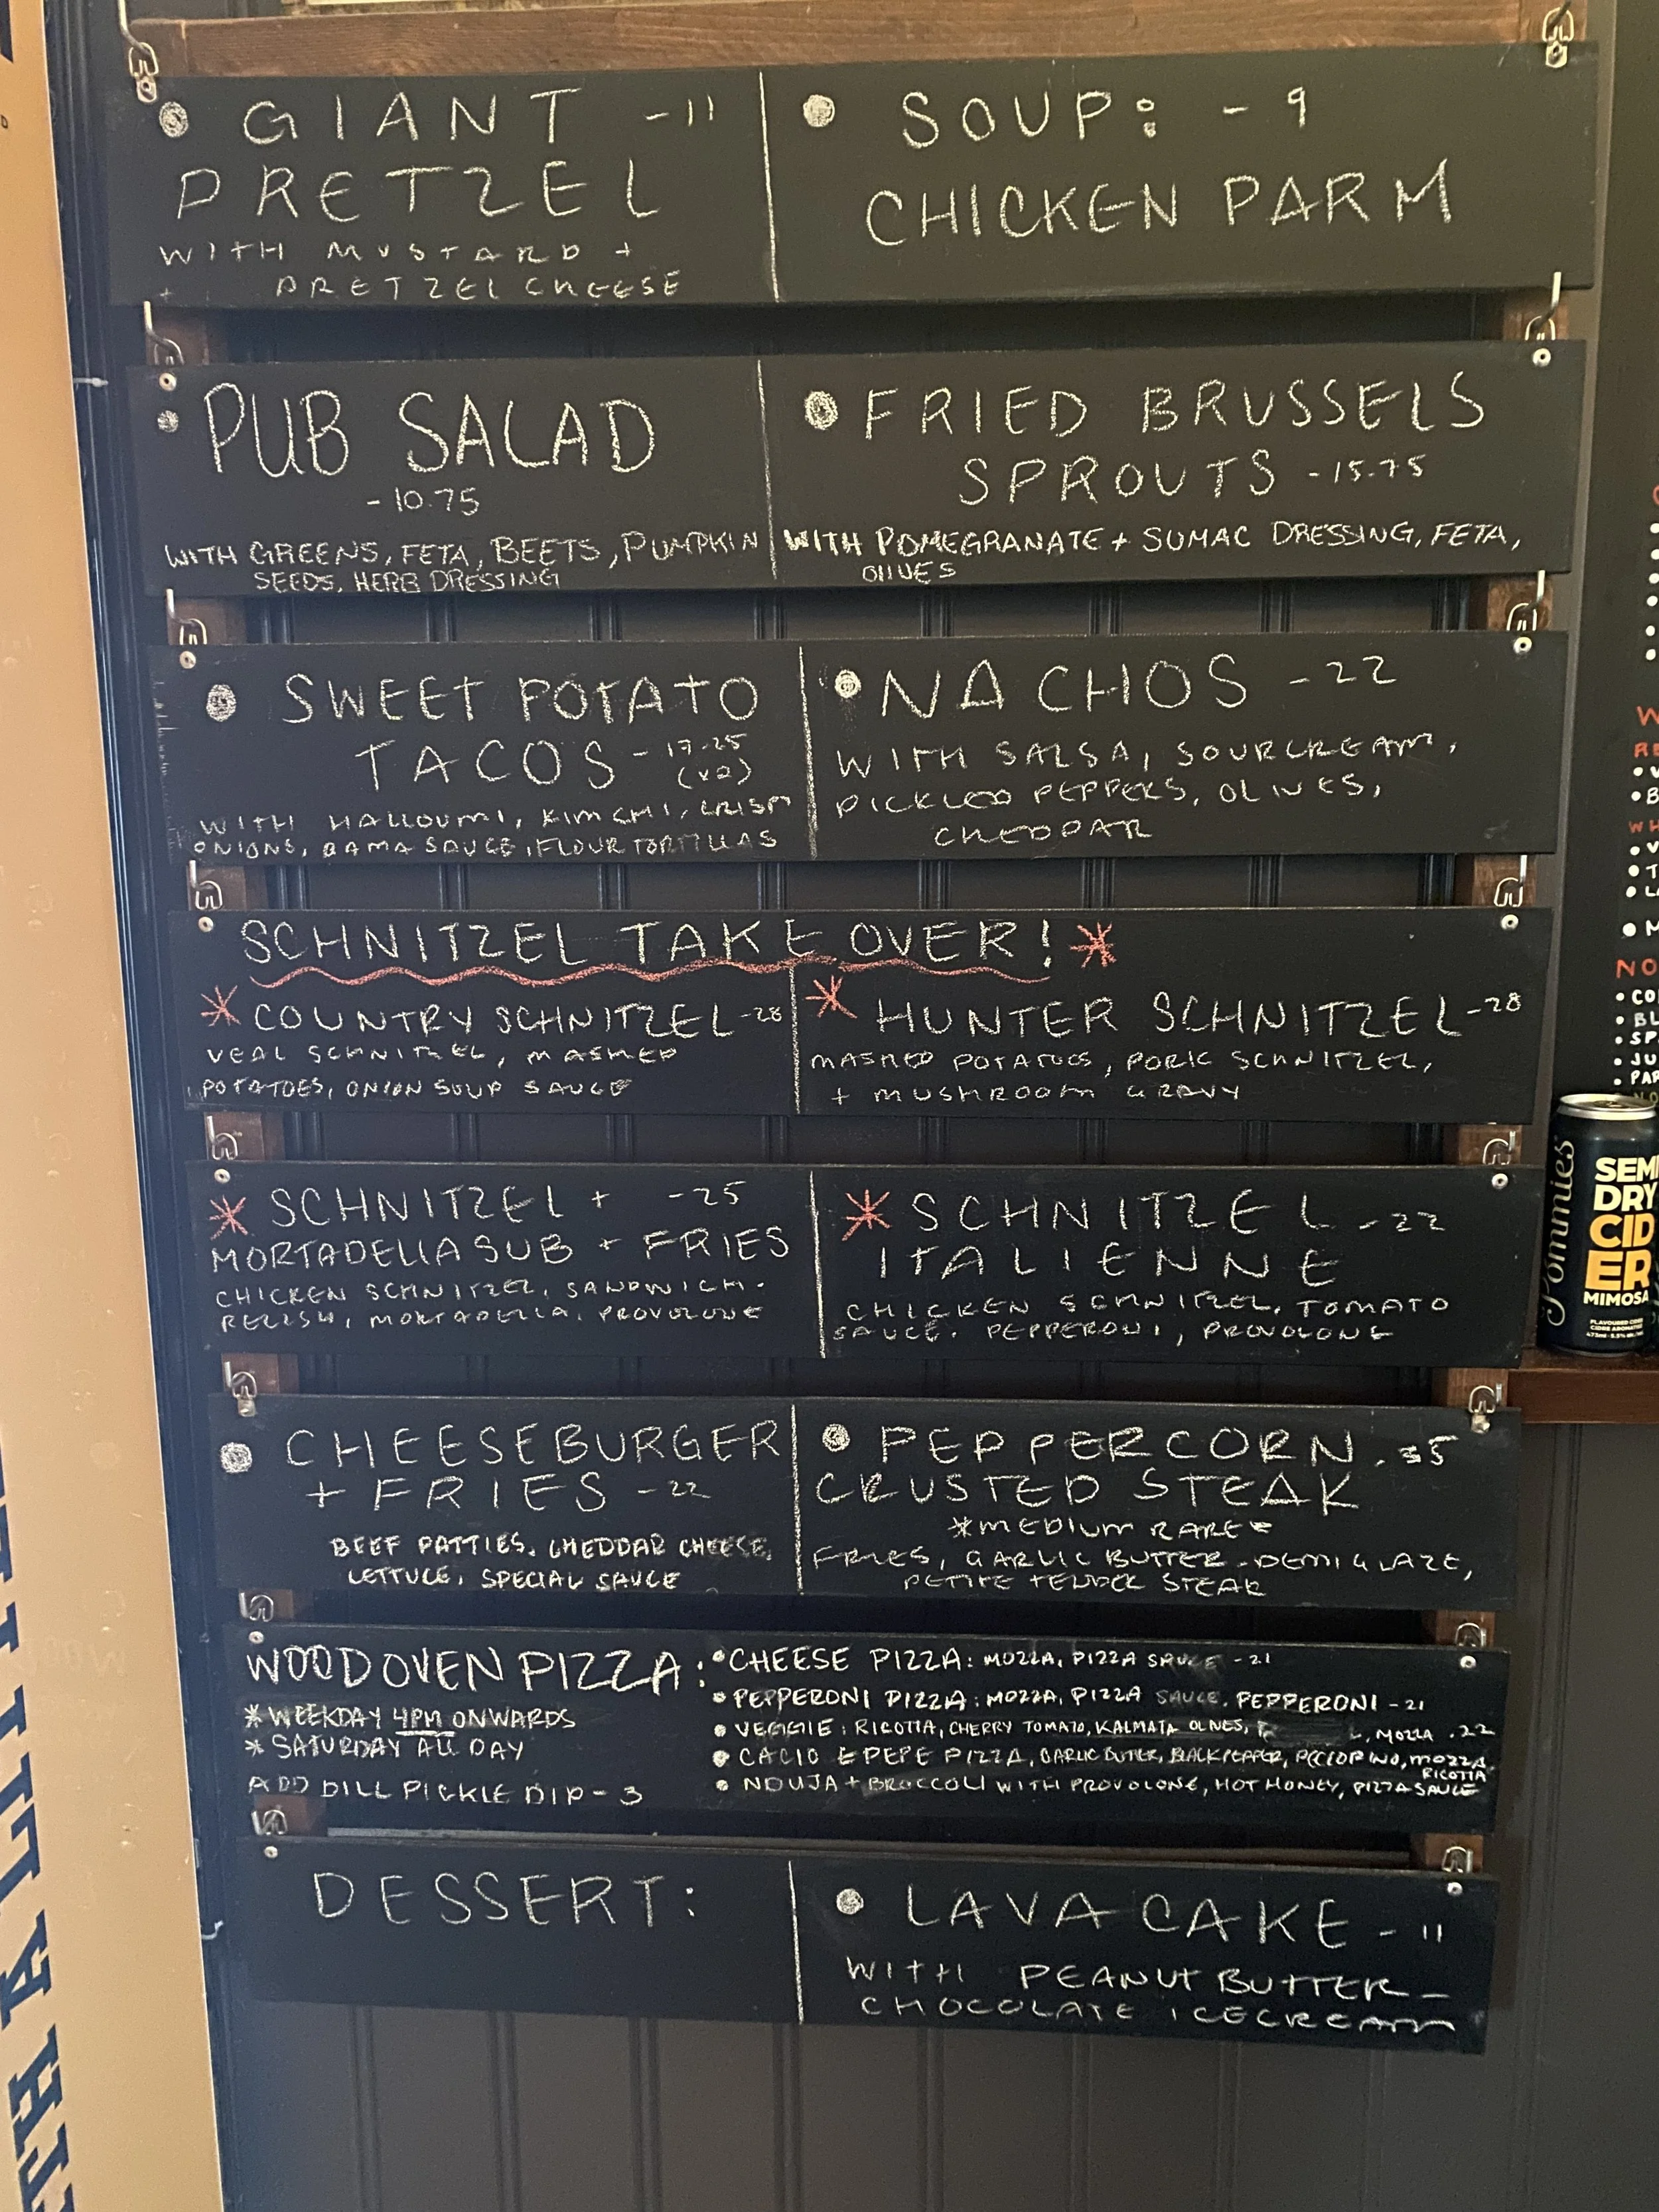 GIANT -11
PRETZEL
WITH MUSTARD +
+ PRETZEL CHEESE
SOUP: - 9
CHICKEN PARM
PUB SALAD
- 10.75
WITH GREENS, FETA, BEETS, PUMPKIN
SEEDS, HERB DRESSING
FRIED BRUSSELS
SPROUTS -15.75
WITH POMEGRANATE + SUMAC DRESSING, FETA,
OLIVES
SWEET POTATO
TACOS - 17.25
(x2)
WITH HALLOUMI, KIMCHI, CRISPY
ONIONS, BAMA SAUCE, FLOUR TORTILLAS
NACHOS -22
WITH SALSA, SOURCREAM,
PICKLED PEPPERS, OLIVES,
CHEDDAR
SCHNITZEL TAKE OVER!
COUNTRY SCHNITZEL -28
VEAL SCHNITZEL, MASHED
POTATOES, ONION SOUP SAUCE
HUNTER SCHNITZEL -28
MASHED POTATOES, PORK SCHNITZEL,
+ MUSHROOM GRAVY
SCHNITZEL + -25
MORTADELLA SUB + FRIES
CHICKEN SCHNITZEL, SANDWICH.
RELISH, MORTADELLA, PROVOLONE
SCHNITZEL -22
ITALIENNE
CHICKEN SCHNITZEL, TOMATO
SAUCE. PEPPERONI, PROVOLONE
CHEESEBURGER
+ FRIES -22
BEEF PATTIES, CHEDDAR CHEESE,
LETTUCE, SPECIAL SAUCE
PEPPERCORN . 35
CRUSTED STEAK
*MEDIUM RARE*
FRIES, GARLIC BUTTER - DEMIGLAZE,
PETITE TENDER STEAK
WOOD OVEN PIZZA:
* WEEKDAY 4PM ONWARDS
* SATURDAY ALL DAY
ADD DILL PICKLE DIP - 3
CHEESE PIZZA: MOZZA, PIZZA SAUCE -21
PEPPERONI PIZZA: MOZZA, PIZZA SAUCE, PEPPERONI -21
VEGGIE: RICOTTA, CHERRY TOMATO, KALMATA OLIVES, MOZZA .22
CACIO E PEPE PIZZA, GARLIC BUTTER, BLACK PEPPER, PECCORINO, MOZZA
RICOTTA
NDUJA + BROCCOLI WITH PROVOLONE, HOT HONEY, PIZZA SAUCE
DESSERT:
LAVA CAKE - 11
WITH PEANUT BUTTER -
CHOCOLATE ICECREAM
Pommies
SEMI
DRY
CID
ER
MIMOSA